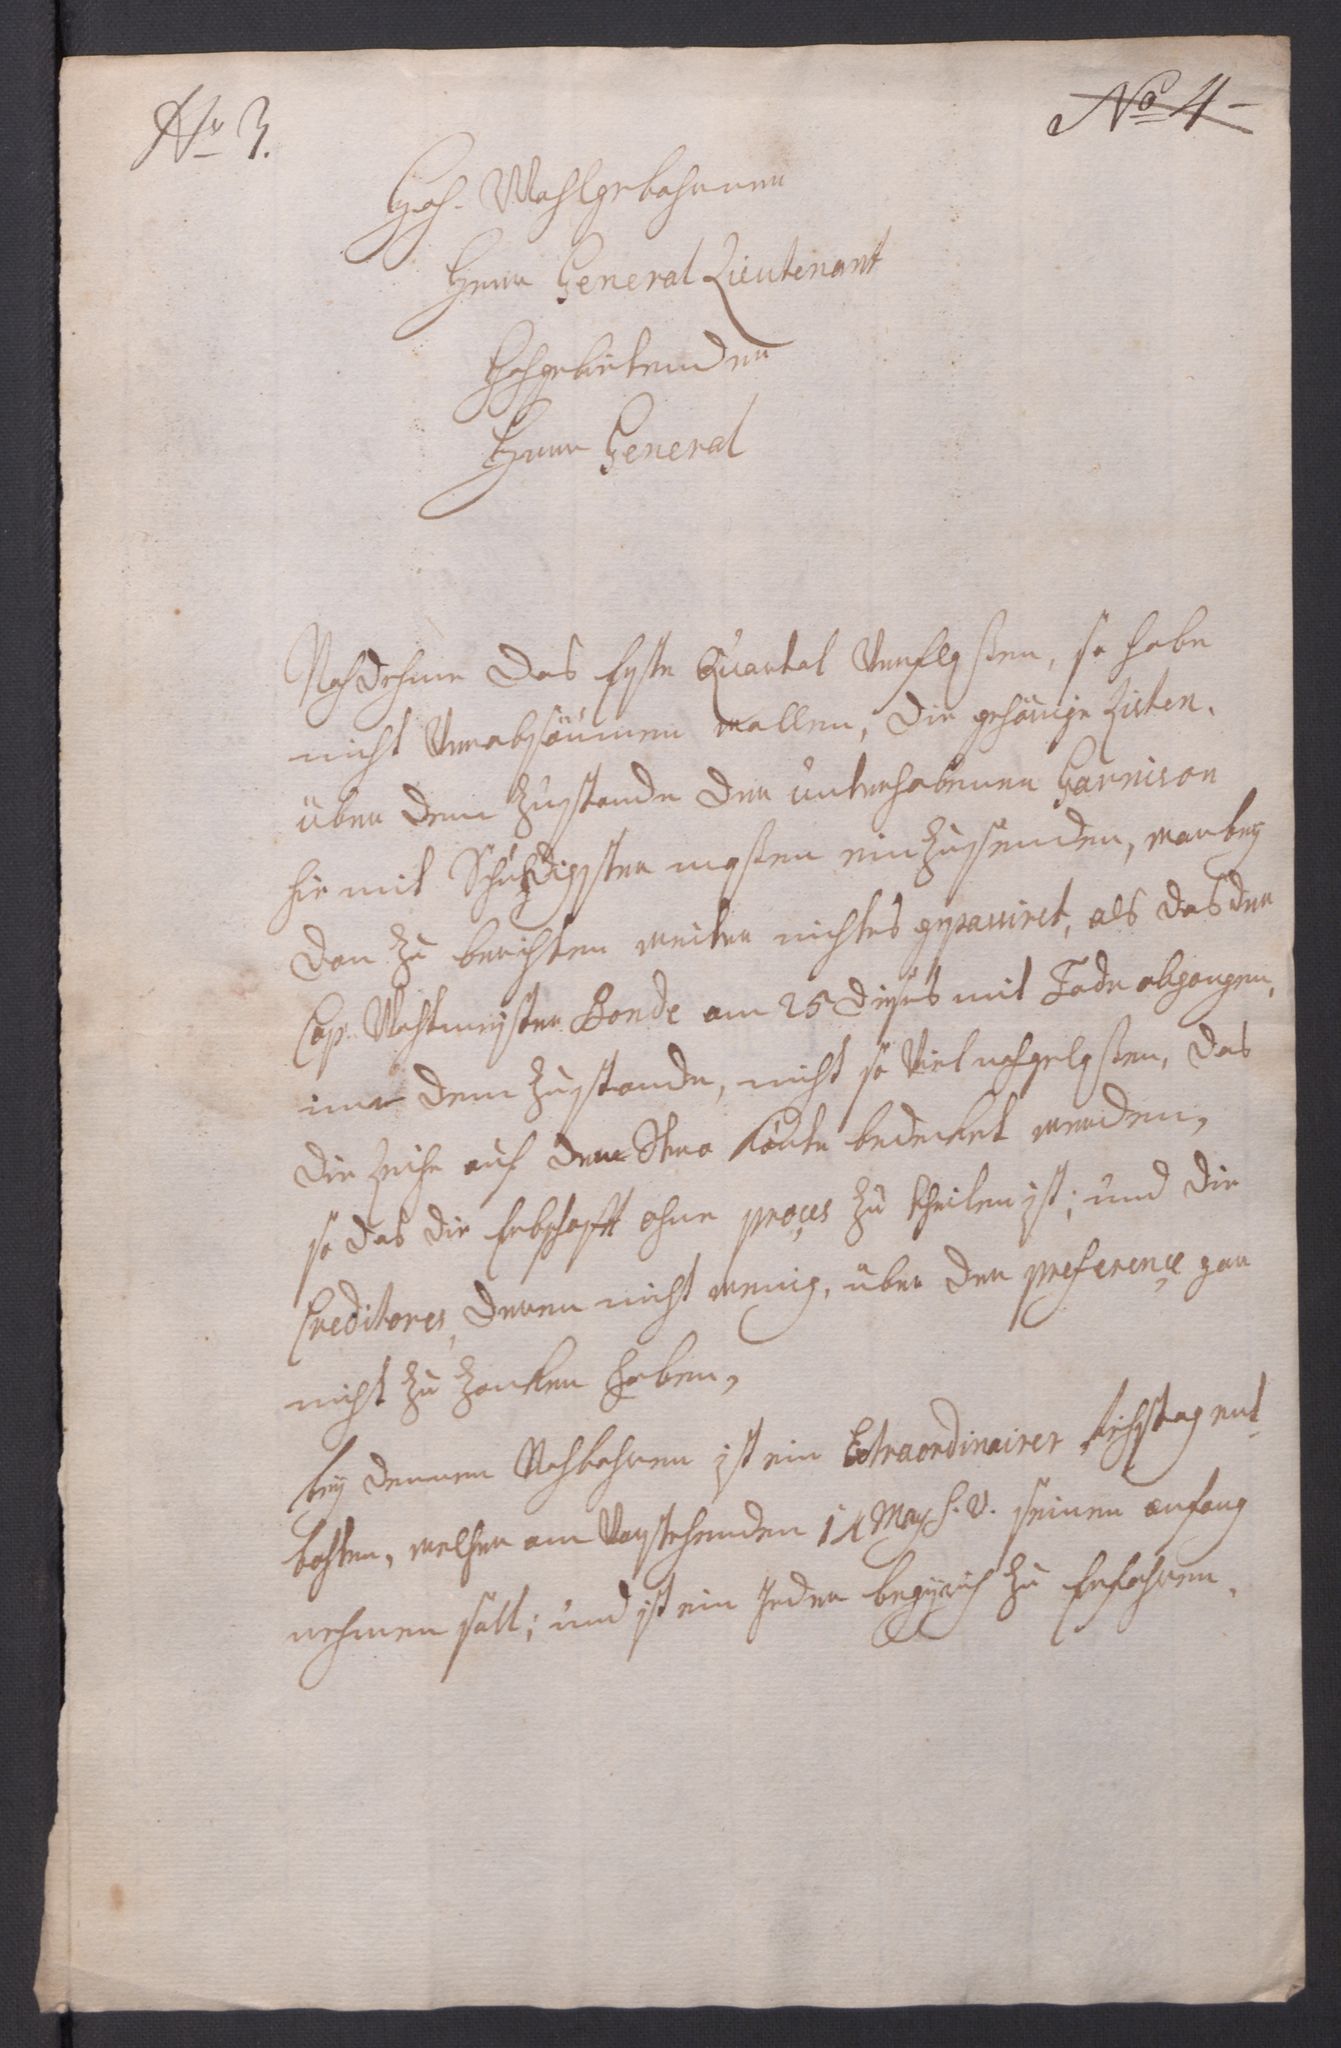 Nr 3.
No 4
Hoch-Wohlgebohrner
Herr General Lieutenant
Hochgebietender
Herr General
Nachdehme das Erste Quartal Verfloßen, so habe
nicht Verabsäumen wollen, die gehörige Listen,
über dem Zustande der unterhabener Garnison
hie mit Schuldigster maßen einzusenden,worbey
dan zu berichten weiter nichtes gepassiret, als das der
Cap. Wachtmeister Bonde am 25 dieses mit Tode abgangen,
inn dem Zustande, nicht so Viel nachgelaßen, das
die Leiche auf dem Stroo könte bedecket werden,
so das die Erbschafft ohne proces zu theilen ist; und die
Creditores, deren nicht wenig, über der preference gar
nicht zu zancken haben,
bey denen Nachbahren ist ein Extraordinairer Reichstag ent
bohten, welcher am Vorstehenden 14 May S. V. seinen anfang
nehmen soll; und ist ein Jeder begierich zu Erfahren,